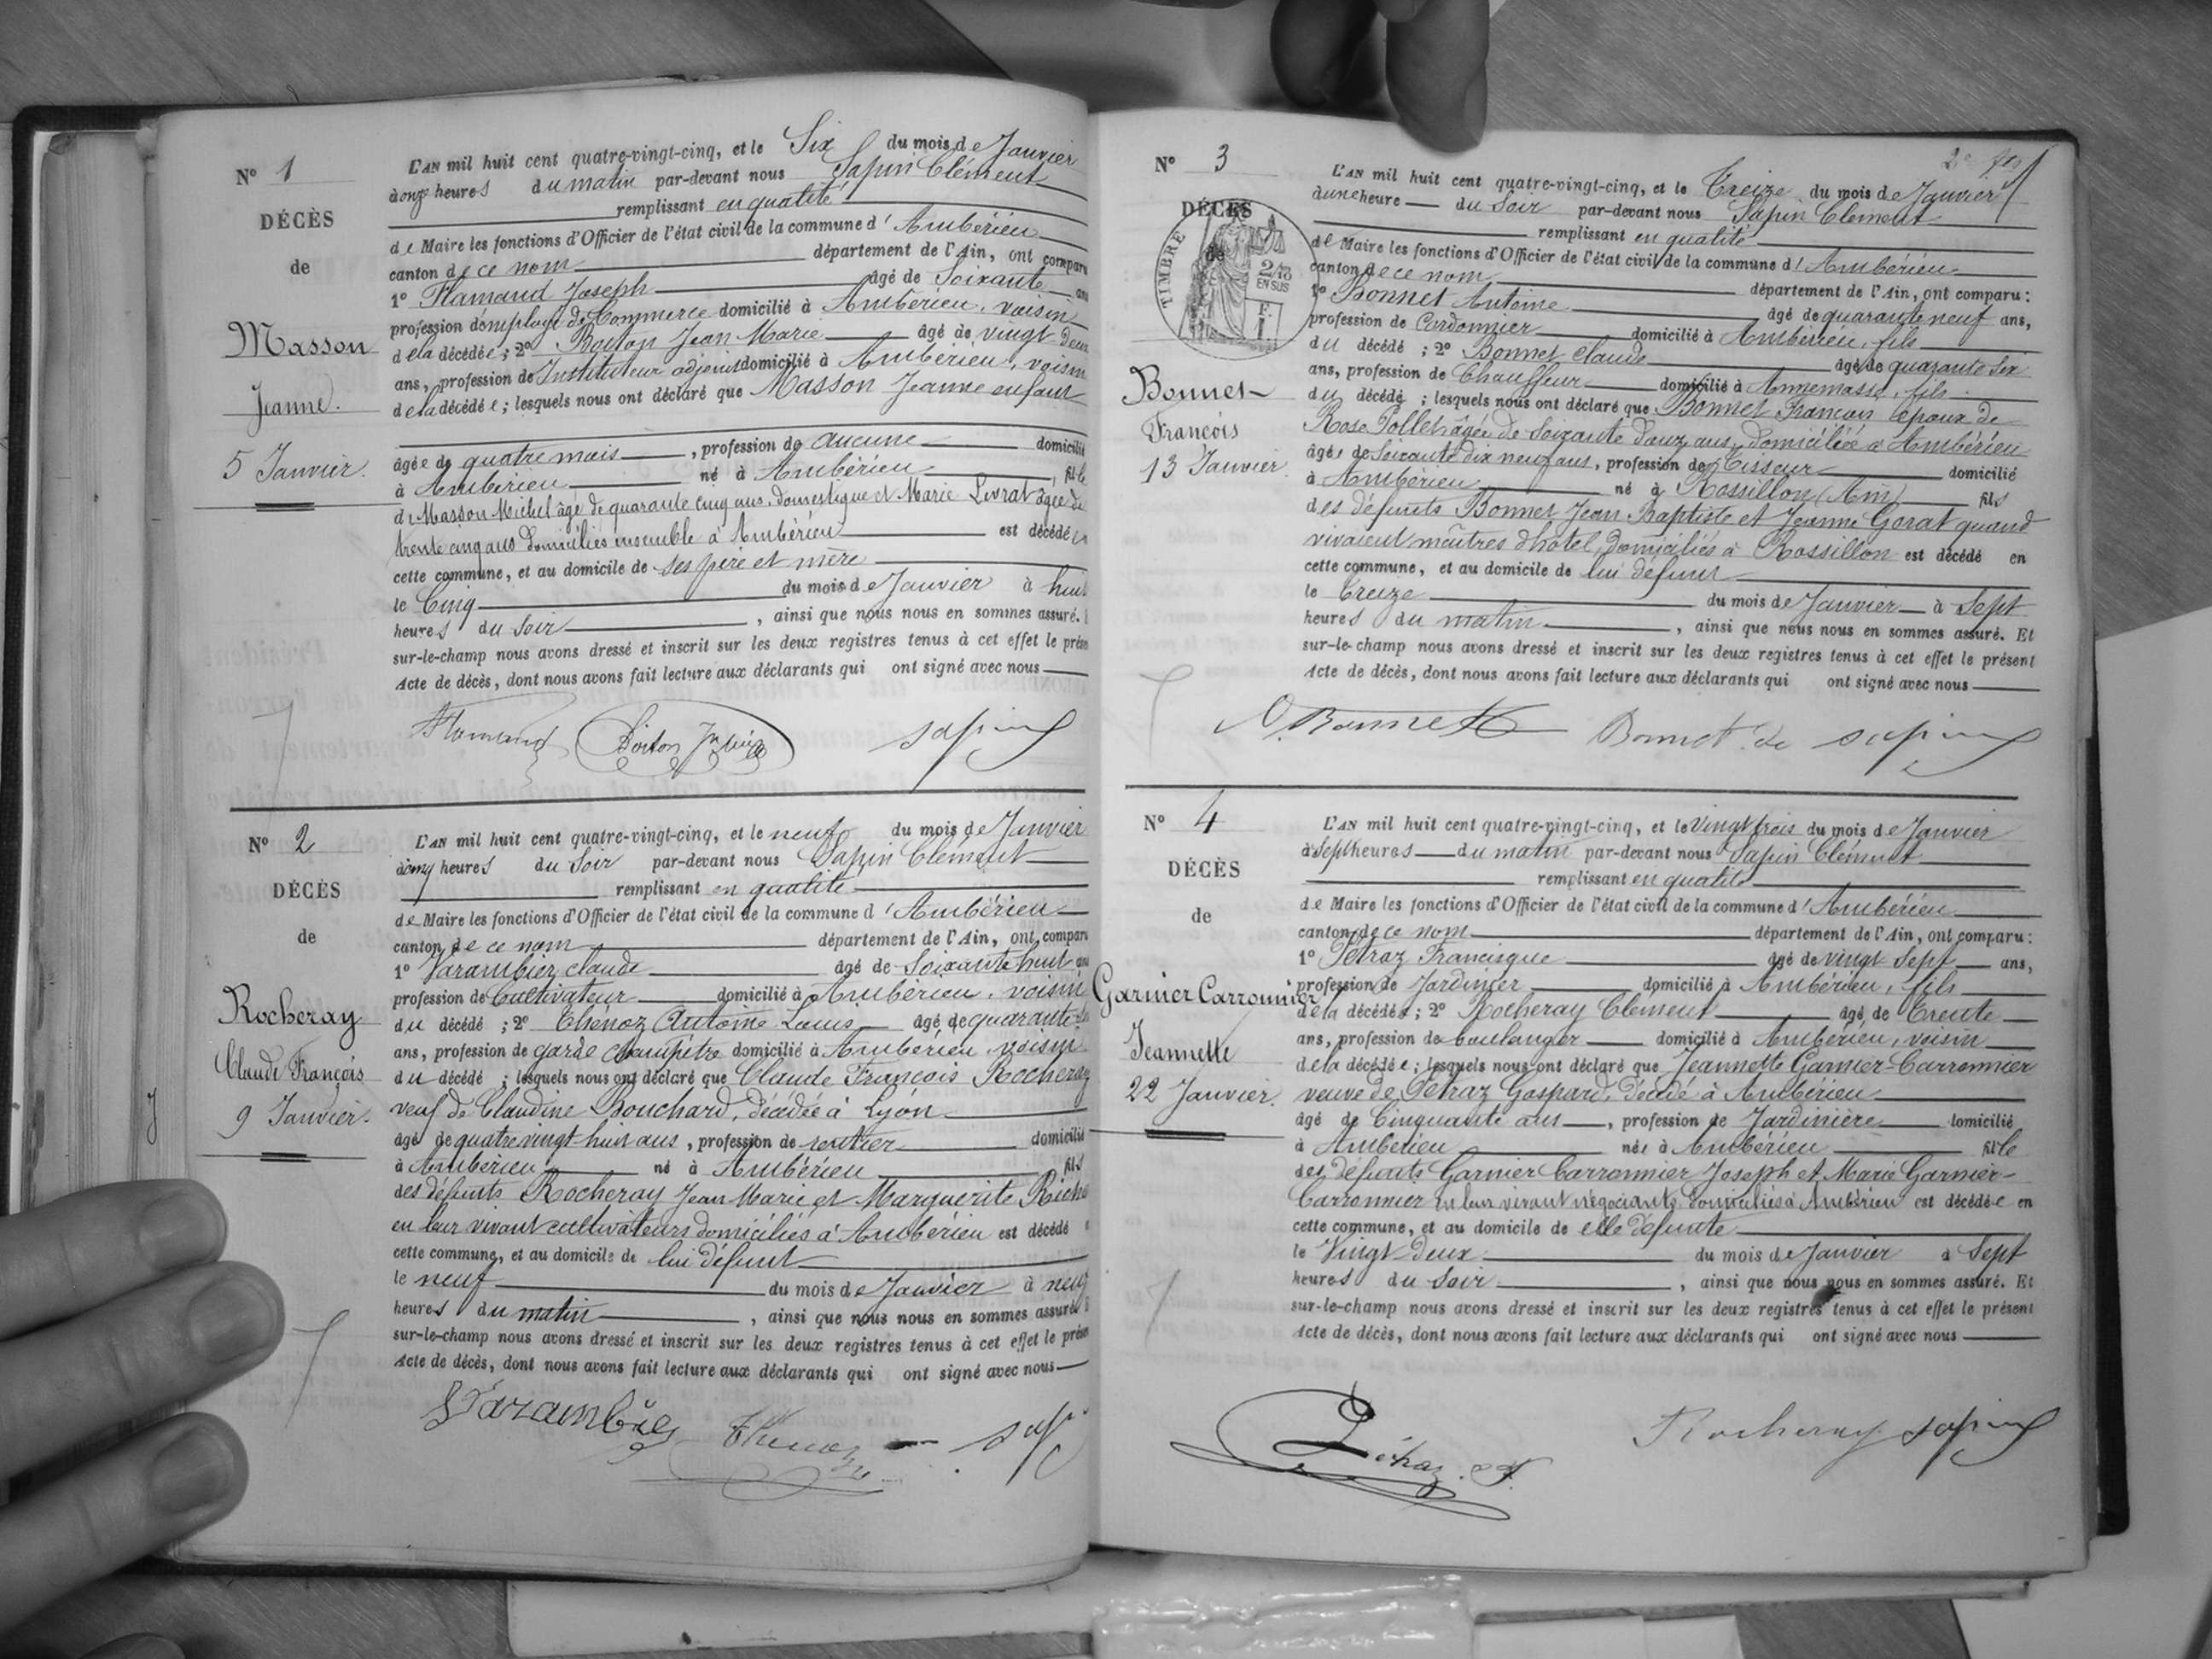 N° 1
DÉCÈS
de
Masson
Jeanne.
5 Janvier.
L'AN mil huit cent quatre-vingt-cinq, et le Six du mois de Janvier
à onze heures du matin par-devant nous Sapin Clément
remplissant en qualité
de Maire les fonctions d'Officier de l'état civil de la commune d'Ambérieu
canton de ce nom département de l'Ain, ont comparu
1° Flamand Joseph âgé de Soixante ans
profession d'employé de Commerce domicilié à Ambérieu, voisin
de la décédée; 2° Boiton Jean Marie âgé de vingt deux
ans, profession de Instituteur adjoint domicilié à Ambérieu, voisin
de la décédée; lesquels nous ont déclaré que Masson Jeanne enfant
âgée de quatre mois, profession de aucune domicilié
à Ambérieu né à Ambérieu, fille
de Masson Michel âgé de quarante cinq ans, domestique et Marie Livrat âgée de
trente cinq ans domiciliés ensemble à Ambérieu est décédée
cette commune, et au domicile de ses père et mère
le Cinq du mois de Janvier à huit
heures du soir, ainsi que nous nous en sommes assuré.
sur-le-champ nous avons dressé et inscrit sur les deux registres tenus à cet effet le présen
Acte de décès, dont nous avons fait lecture aux déclarants qui ont signé avec nous
Flamand Boiton Sapin
N° 2
DÉCÈS
de
Rocheray
Claude François
9 Janvier.
L'AN mil huit cent quatre-vingt-cinq, et le neuf du mois de Janvier
à cinq heures du Soir par-devant nous Sapin Clément
remplissant en qualité
de Maire les fonctions d'Officier de l'état civil de la commune d'Ambérieu
canton de ce nom département de l'Ain, ont comparu
1° Varambier Claude âgé de Soixante huit ans
profession de Cultivateur domicilié à Ambérieu, voisin
du décédé; 2° Thénoz Antoine Louis âgé de quarante
ans, profession de garde champêtre domicilié à Ambérieu voisin
du décédé; lesquels nous ont déclaré que Claude François Rocheray
veuf de Claudine Bouchard, décédée à Lyon
âgé de quatre vingt huit ans, profession de rentier domicilié
à Ambérieu né à Ambérieu fils
des défunts Rocheray Jean Marie et Marguerite
en leur vivant cultivateurs domiciliés à Ambérieu est décédé
cette commune, et au domicile de lui défunt
le neuf du mois de Janvier à neuf
heures du matin, ainsi que nous nous en sommes assuré
sur-le-champ nous avons dressé et inscrit sur les deux registres tenus à cet effet le présen
Acte de décès, dont nous avons fait lecture aux déclarants qui ont signé avec nous
Varambier Thenoz Sap
2e
N° 3
DÉCÈS
de
TIMBRE
2/10
EN SUS
F.
Bonnet
François
13 Janvier.
L'AN mil huit cent quatre-vingt-cinq, et le Treize du mois de Janvier
à une heure du Soir par-devant nous Sapin Clément
remplissant en qualité
de Maire les fonctions d'Officier de l'état civil de la commune d'Ambérieu
canton de ce nom département de l'Ain, ont comparu:
1° Bonnet Antoine âgé de quarante neuf ans,
profession de Cordonnier domicilié à Ambérieu, fils
du décédé; 2° Bonnet Claude âgé de quarante six
ans, profession de Chauffeur domicilié à Annemasse, fils
du décédé; lesquels nous ont déclaré que Bonnet François époux de
Rose Pollet âgée de Soixante douze ans, domiciliée à Ambérieu
âgé de Soixante dix neuf ans, profession de Tisseur domicilié
à Ambérieu né à Rossillon (Ain) fils
des défunts Bonnet Jean Baptiste et Jeanne Gorat quand
vivaient maîtres d'hôtel, domiciliés à Rossillon est décédé en
cette commune, et au domicile de lui défunt
le Treize du mois de Janvier à Sept
heures du matin, ainsi que nous nous en sommes assuré. Et
sur-le-champ nous avons dressé et inscrit sur les deux registres tenus à cet effet le présent
Acte de décès, dont nous avons fait lecture aux déclarants qui ont signé avec nous
Bonnet Bonnet Sapin
N° 4
DÉCÈS
de
Garnier Carronnier
Jeannette
22 Janvier.
L'AN mil huit cent quatre-vingt-cinq, et le Vingt trois du mois de Janvier
à Sept heures du matin par-devant nous Sapin Clément
remplissant en qualité
de Maire les fonctions d'Officier de l'état civil de la commune d'Ambérieu
canton de ce nom département de l'Ain, ont comparu:
1° Pétraz Francisque âgé de vingt sept ans,
profession de Jardinier domicilié à Ambérieu, fils
de la décédée; 2° Rocheray Clément âgé de Trente
ans, profession de boulanger domicilié à Ambérieu, voisin
de la décédée; lesquels nous ont déclaré que Jeannette Garnier-Carronnier
veuve de Pétraz Gaspard, décédé à Ambérieu
âgé de Cinquante ans, profession de Jardinière domicilié
à Ambérieu née à Ambérieu fille
des défunts Garnier Carronnier Joseph et Marie Garnier-
Carronnier en leur vivant négociants, domiciliés à Ambérieu est décédée en
cette commune, et au domicile de elle défunte
le Vingt deux du mois de Janvier à Sept
heures du Soir, ainsi que nous nous en sommes assuré. Et
sur-le-champ nous avons dressé et inscrit sur les deux registres tenus à cet effet le présent
Acte de décès, dont nous avons fait lecture aux déclarants qui ont signé avec nous
Pétraz F. Rocheray Sapin